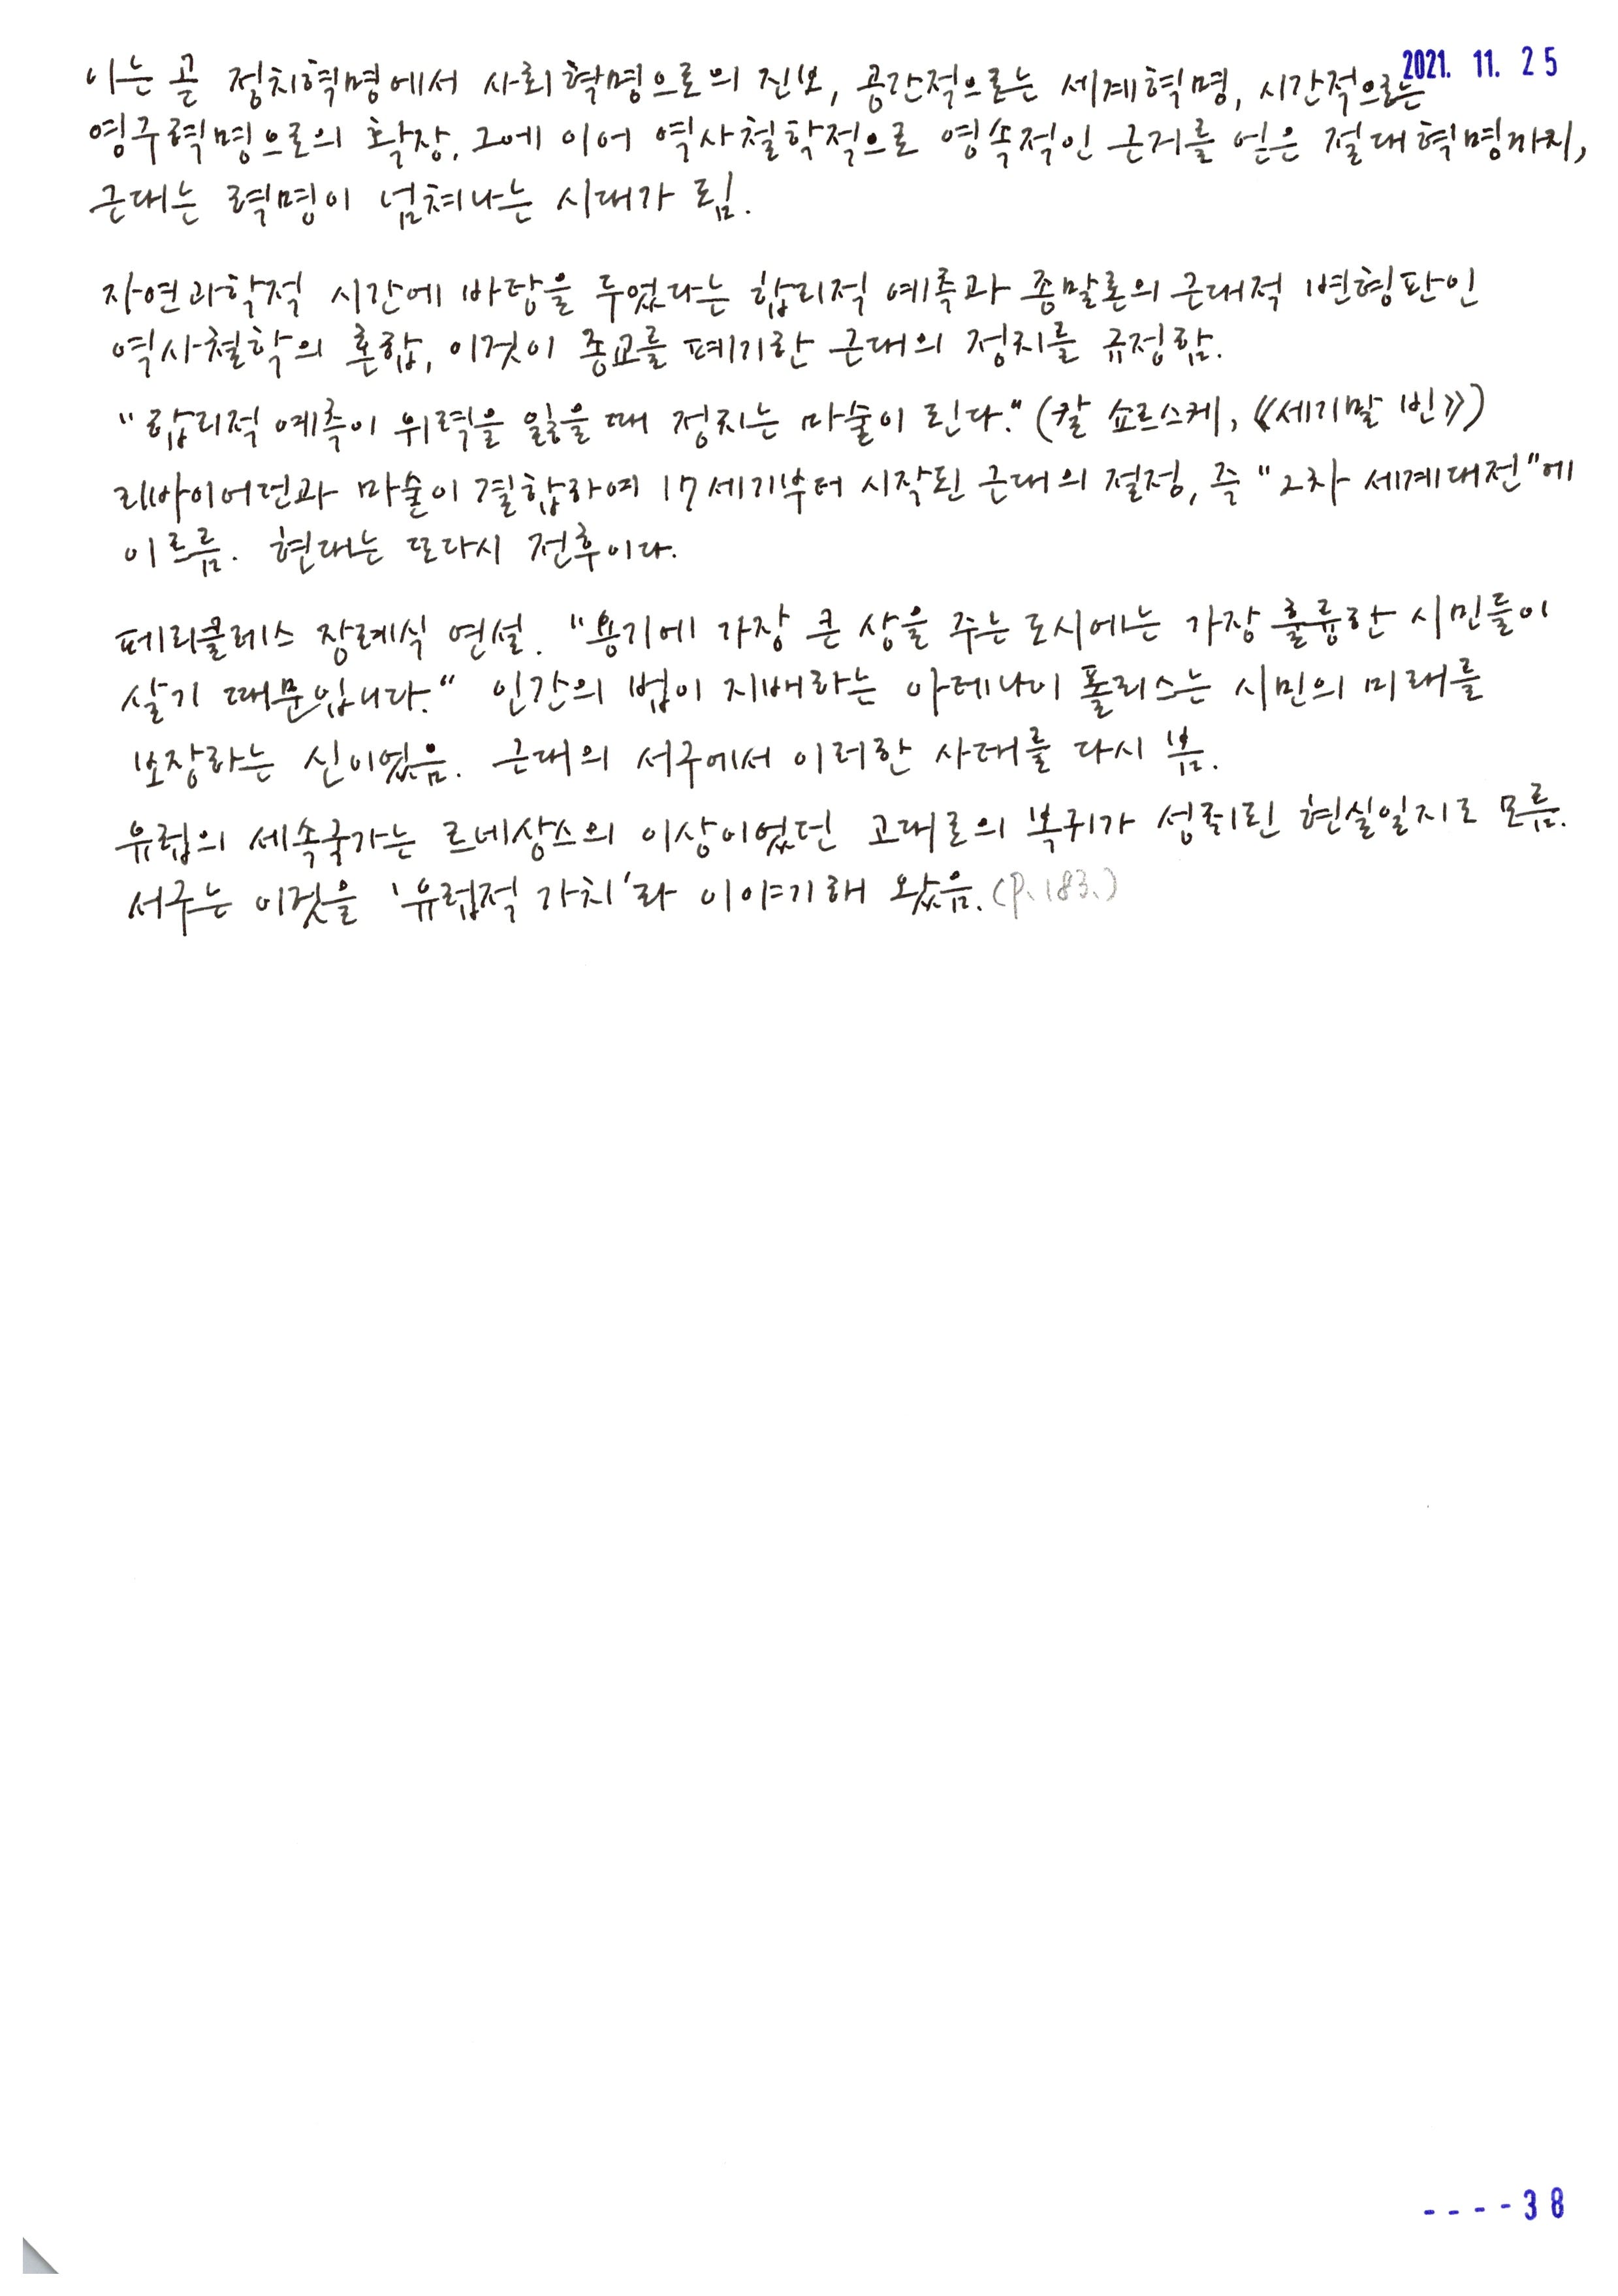 2021. 11. 25
이는 곧 정치혁명에서 사회혁명으로의 진보, 공간적으로는 세계혁명, 시간적으로는
영구혁명으로의 확장. 그에 이어 역사철학적으로 영속적인 근거를 얻은 절대혁명까지,
근대는 혁명이 넘쳐나는 시대가 됨.
자연과학적 시간에 바탕을 두었다는 합리적 예측과 종말론의 근대적 변형판인
역사철학의 혼합, 이것이 종교를 폐기한 근대의 정치를 규정함.
"합리적 예측이 위력을 잃을 때 정치는 마술이 된다." (칼 쇼르스케, 《세기말 빈》)
리바이어던과 마술이 결합하여 17세기부터 시작된 근대의 절정, 즉 "2차 세계대전"에
이르름. 현대는 또다시 전후이다.
페리클레스 장례식 연설. "용기에 가장 큰 상을 주는 도시에는 가장 훌륭한 시민들이
살기 때문입니다." 인간의 법이 지배하는 아테나이 폴리스는 시민의 미래를
보장하는 신이었음. 근대의 서구에서 이러한 사태를 다시 봄.
유럽의 세속국가는 르네상스의 이상이었던 고대로의 복귀가 성취된 현실일지도 모름.
서구는 이것을 '유럽적 가치'라 이야기해 왔음. (p.183.)
----38